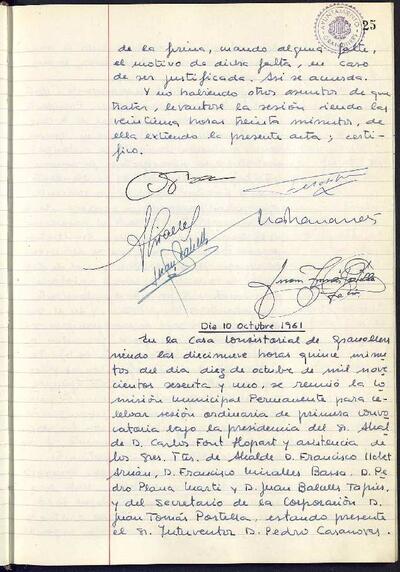 25
AYUNTAMIENTO
de la firma, cuando alguna falte,
el motivo de dicha falta, en caso
de ser justificada. Así se acuerda.
Y no habiendo otros asuntos de que
tratar, levantóse la sesión siendo las
veintiuna horas treinta minutos, de
ella extiendo la presente acta; certi-
fico.
Día 10 Octubre 1961
En la Casa Consistorial de Granollers
siendo las diecinueve horas quince minu-
tos del día diez de octubre de mil nove-
cientos sesenta y uno, se reunió la Co-
misión Municipal Permanente para ce-
lebrar sesión ordinaria de primera convo-
catoria bajo la presidencia del Sr. Alcal-
de D. Carlos Font Llopart y asistencia de
los Sres. Ttes. de Alcalde D. Francisco Llobet
Arnán, D. Francisco Miralles Bassa, D. Pe-
dro Plana Martí y D. Juan Balcells Tapies,
y del Secretario de la Corporación D.
Juan Tomás Postella, estando presente
el Sr. Interventor D. Pedro Casanovas.